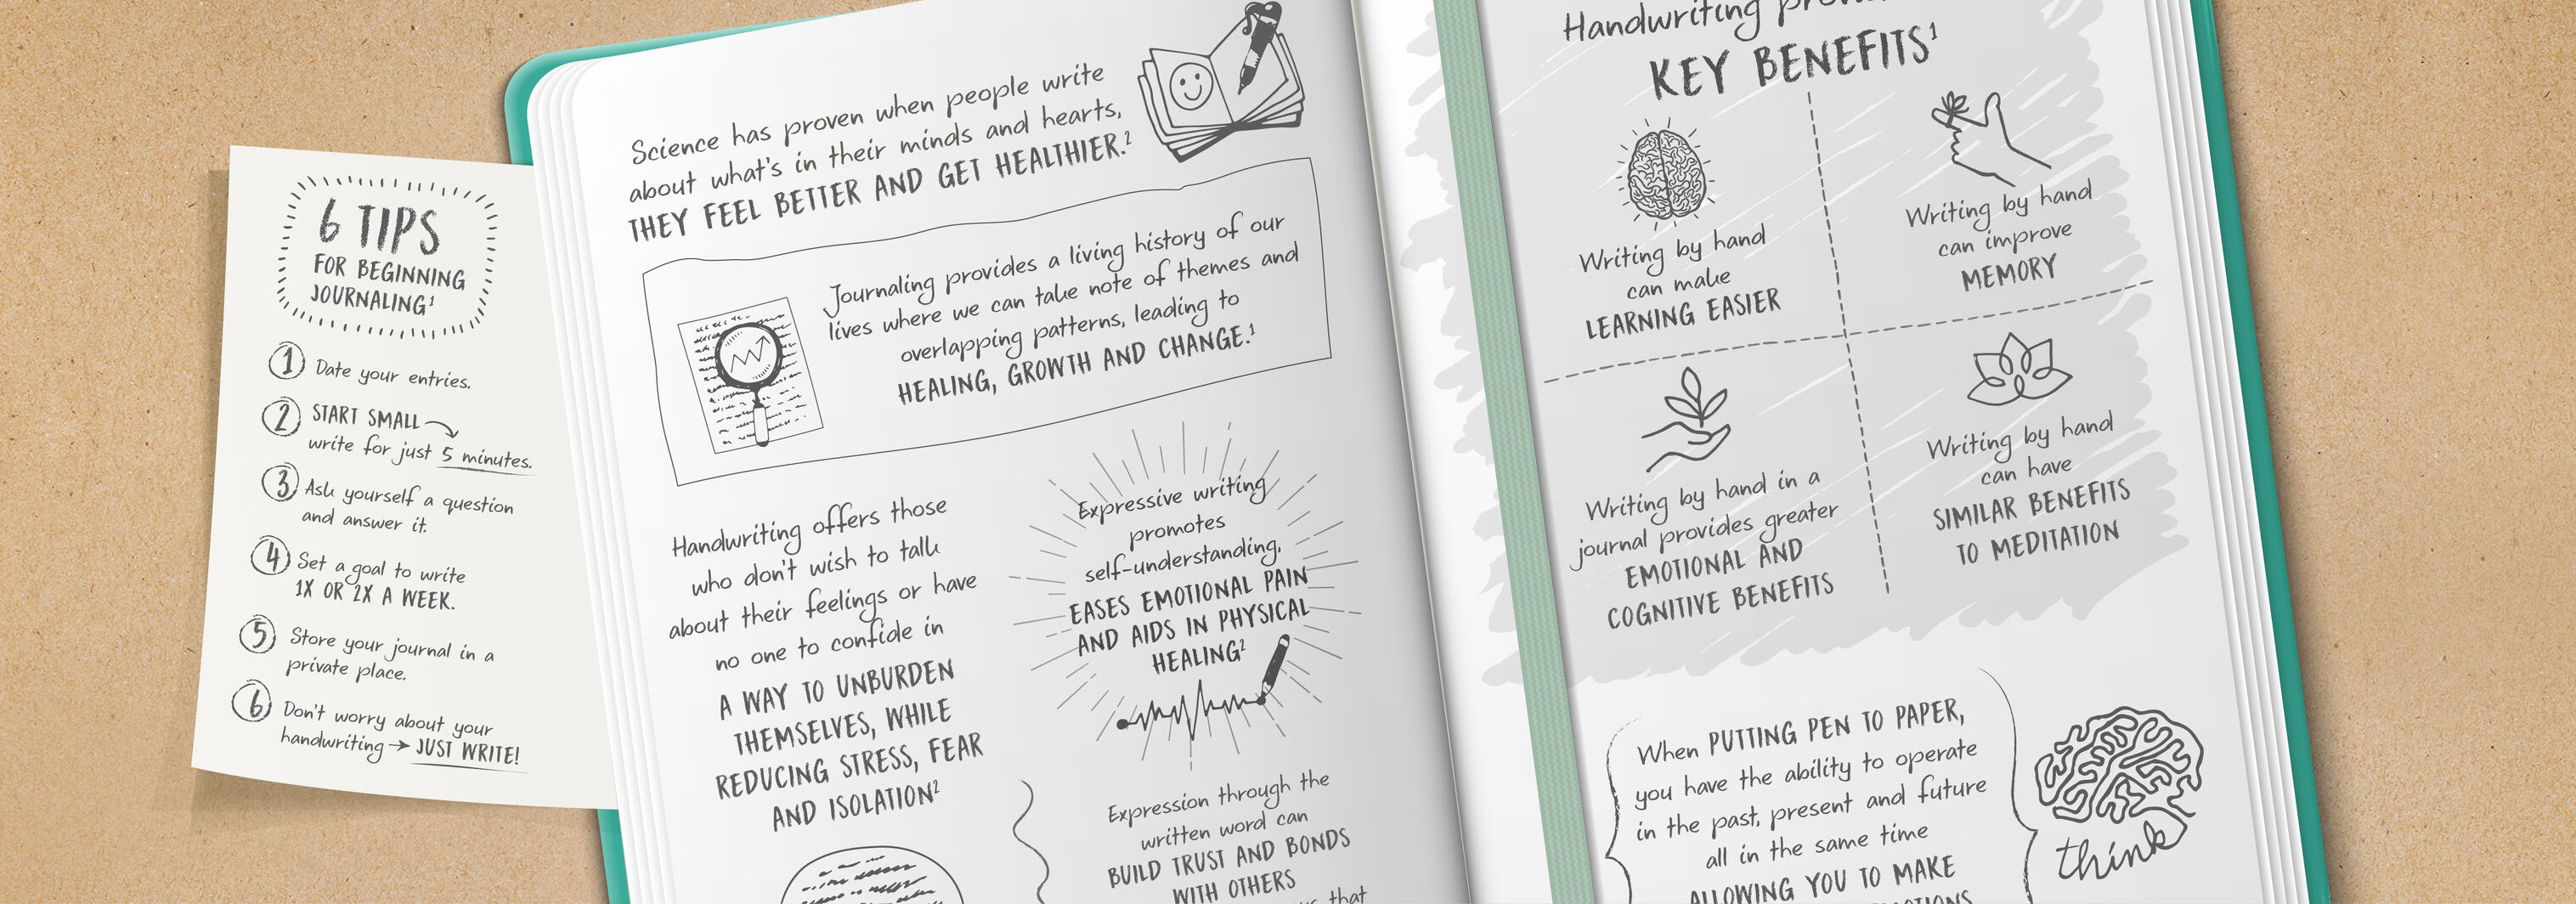 6 TIPS
FOR BEGINNING
JOURNALING¹
1 Date your entries.
2 START SMALL
write for just 5 minutes.
3 Ask yourself a question
and answer it.
4 Set a goal to write
1X OR 2X A WEEK.
5 Store your journal in a
private place.
6 Don't worry about your
handwriting → JUST WRITE!
Science has proven when people write
about what's in their minds and hearts,
THEY FEEL BETTER AND GET HEALTHIER.²
Journaling provides a living history of our
lives where we can take note of themes and
overlapping patterns, leading to
HEALING, GROWTH AND CHANGE.¹
Handwriting offers those
who don't wish to talk
about their feelings or have
no one to confide in
A WAY TO UNBURDEN
THEMSELVES, WHILE
REDUCING STRESS, FEAR
AND ISOLATION²
Expressive writing
promotes
self-understanding,
EASES EMOTIONAL PAIN
AND AIDS IN PHYSICAL
HEALING²
Expression through the
written word can
BUILD TRUST AND BONDS
WITH OTHERS
that
Handwriting
KEY BENEFITS¹
Writing by hand
can make
LEARNING EASIER
Writing by hand
can improve
MEMORY
Writing by hand in a
journal provides greater
EMOTIONAL AND
COGNITIVE BENEFITS
Writing by hand
can have
SIMILAR BENEFITS
TO MEDITATION
When PUTTING PEN TO PAPER,
you have the ability to operate
in the past, present and future
all in the same time
ALLOWING YOU TO MAKE
think